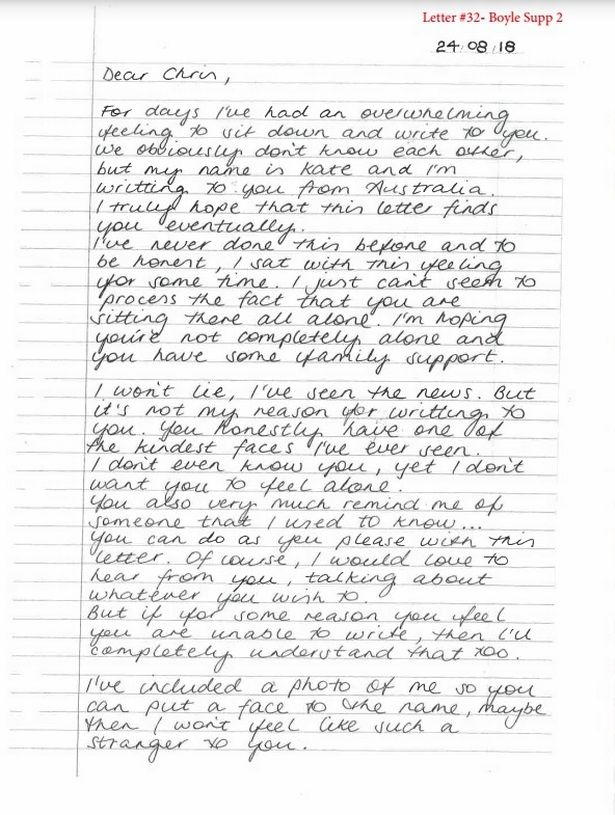 Letter #32- Boyle Supp 2
24 08 18
Dear Chris,
For days I've had an overwhelming
feeling to sit down and write to you.
We obviously don't know each other,
but my name is Kate and I'm
writting to you from Australia.
I truly hope that this letter finds
you eventually.
I've never done this before and to
be honest, I sat with this feeling
for some time. I just can't seem to
process the fact that you are
sitting there all alone. I'm hoping
you're not completely alone and
you have some family support.
I won't lie, I've seen the news. But
it's not my reason for writting to
you. You honestly have one of
the kindest faces I've ever seen.
I don't even know you, yet I don't
want you to feel alone.
You also very much remind me of
someone that I used to know...
You can do as you please with this
letter. Of course, I would love to
hear from you, talking about
whatever you wish to.
But if for some reason you feel
you are unable to write, then I'll
completely understand that too.
I've included a photo of me so you
can put a face to the name, maybe
then I won't feel like such a
stranger to you.